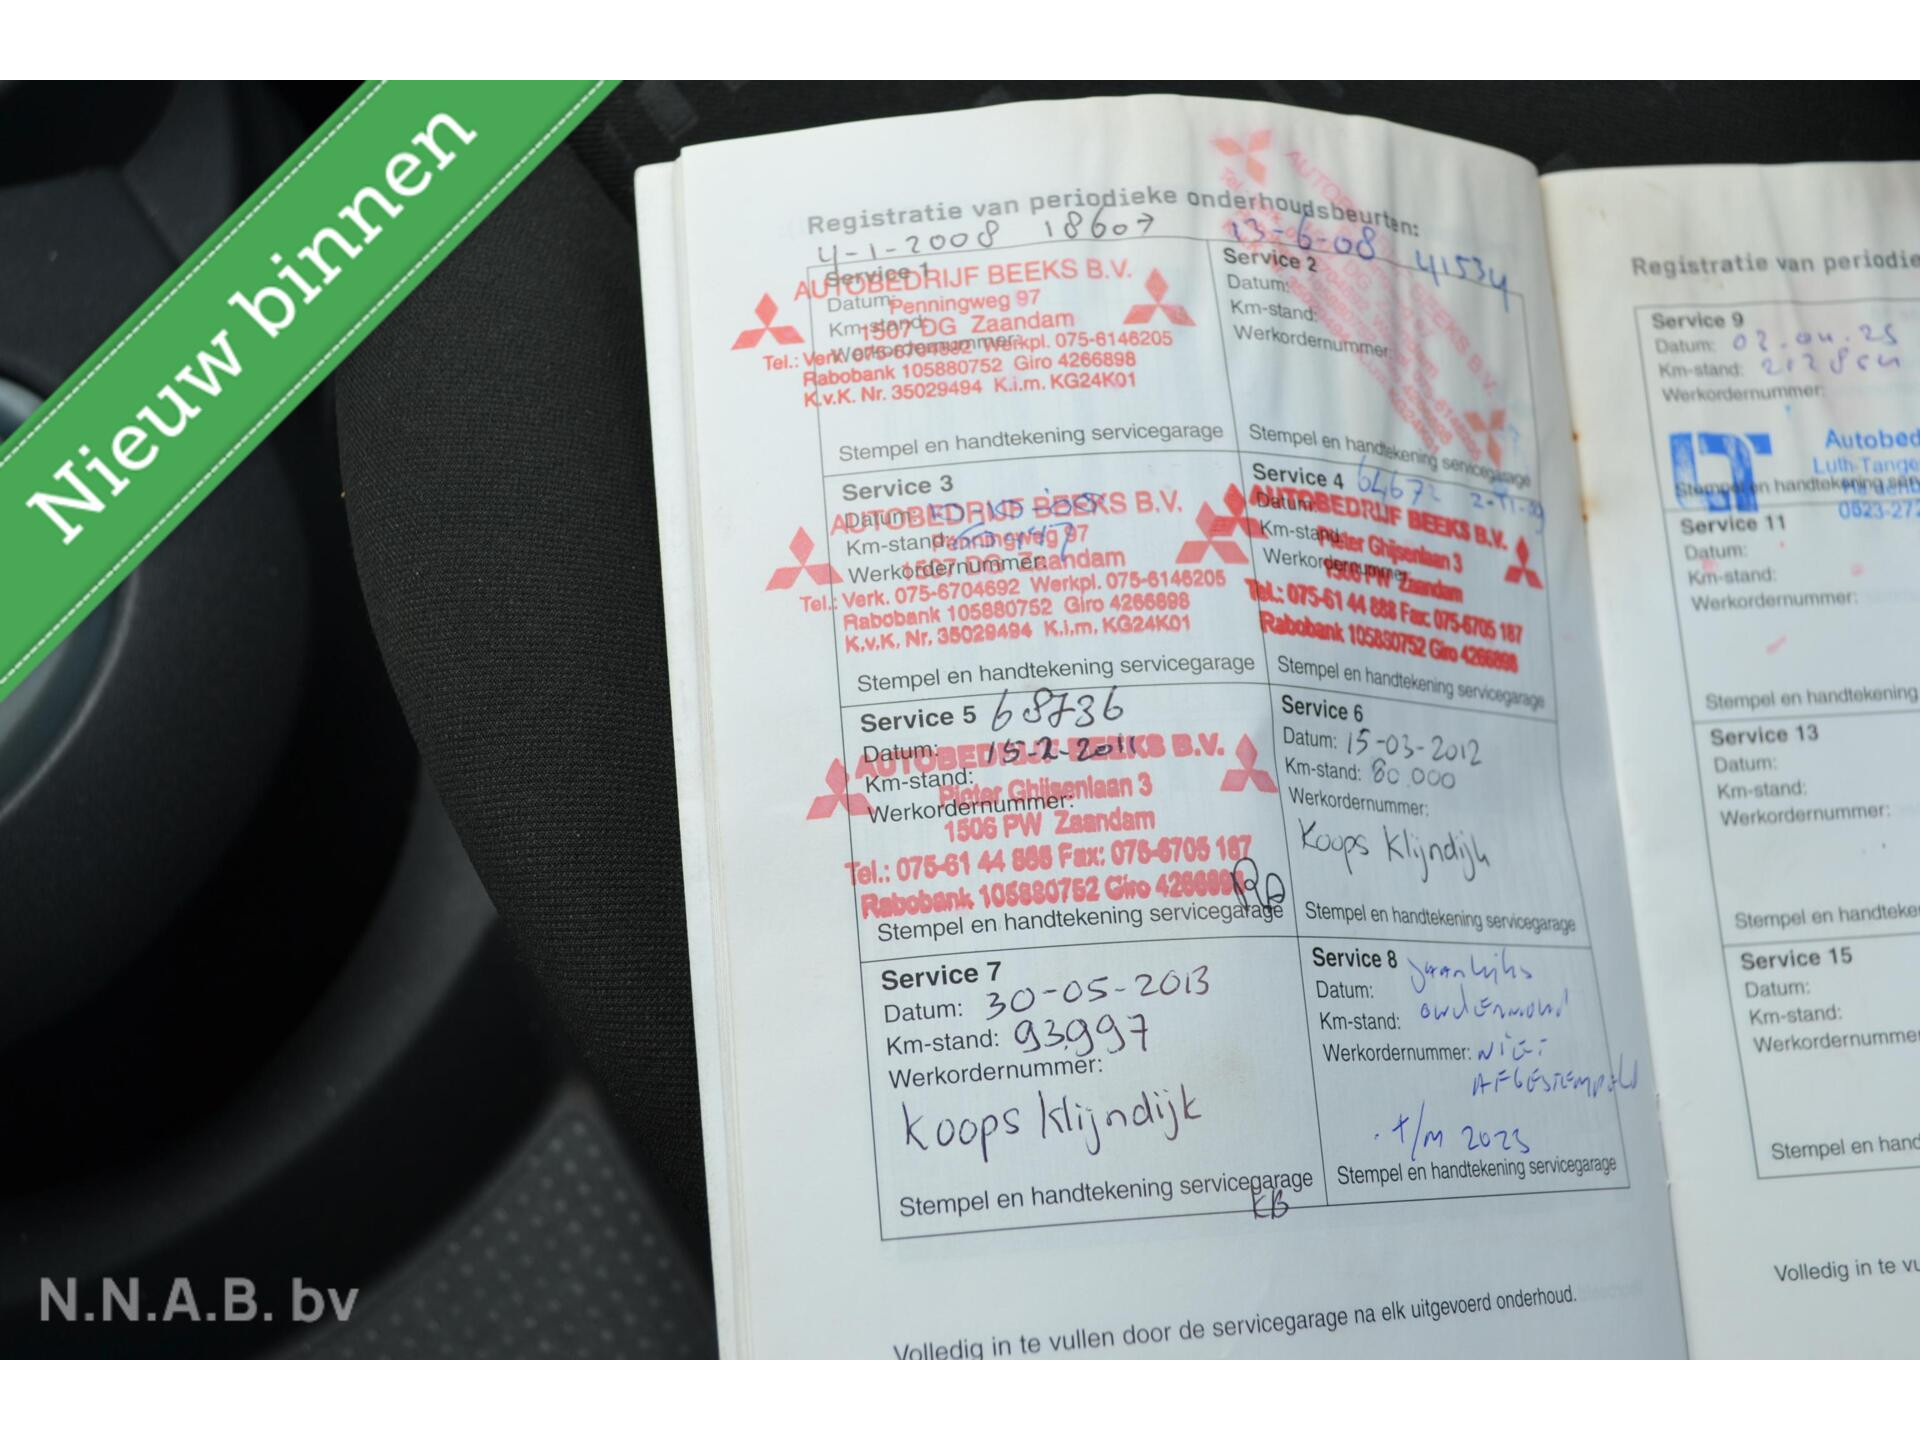 Nieuw binnen
Registratie van periodieke onderhoudsbeurten:
4-1-2008 18607
Service 1
Datum:
Km-stand:
Werkordernummer:
AUTOBEDRIJF BEEKS B.V.
Penningweg 97
1507 DG Zaandam
Tel.: Verk. 075-6704692 Werkpl. 075-6146205
Rabobank 105880752 Giro 4266898
K.v.K. Nr. 35029494 K.i.m. KG24K01
Stempel en handtekening servicegarage
13-6-08 41534
Service 2
Datum:
Km-stand:
Werkordernummer:
Stempel en handtekening servicegarage
Service 3
Datum:
Km-stand:
Werkordernummer:
AUTOBEDRIJF BEEKS B.V.
Penningweg 97
1507 DG Zaandam
Tel.: Verk. 075-6704692 Werkpl. 075-6146205
Rabobank 105880752 Giro 4266898
K.v.K. Nr. 35029494 K.i.m. KG24K01
Stempel en handtekening servicegarage
Service 4 64672
Datum:
Km-stand:
Werkordernummer:
AUTOBEDRIJF BEEKS B.V.
Pieter Ghijsenlaan 3
1506 PW Zaandam
Tel.: 075-61 44 888 Fax: 075-6705 187
Rabobank 105880752 Giro 4266898
Stempel en handtekening servicegarage
Service 5 68736
Datum: 15-2-2011
Km-stand:
Werkordernummer:
AUTOBEDRIJF BEEKS B.V.
Pieter Ghijsenlaan 3
1506 PW Zaandam
Tel.: 075-61 44 888 Fax: 075-6705 187
Rabobank 105880752 Giro 4266898
Stempel en handtekening servicegarage
Service 6
Datum: 15-03-2012
Km-stand: 80.000
Werkordernummer:
Koops Klijndijk
Stempel en handtekening servicegarage
Service 7
Datum: 30-05-2013
Km-stand: 93.997
Werkordernummer:
Koops Klijndijk
Stempel en handtekening servicegarage
KB
Service 8 Jaarlijks
Datum:
Km-stand:
Werkordernummer: NIET
AFGESTEMPELD
t/m 2023
Stempel en handtekening servicegarage
Volledig in te vullen door de servicegarage na elk uitgevoerd onderhoud.
Registratie van periodie
Service 9
Datum: 02.04.25
Km-stand:
Werkordernummer:
Autobed
Luth-Tange
0523-272
Service 11
Datum:
Km-stand:
Werkordernummer:
Stempel en handtekening
Service 13
Datum:
Km-stand:
Werkordernummer:
Stempel en handteke
Service 15
Datum:
Km-stand:
Werkordernumme
Stempel en hand
Volledig in te vu
N.N.A.B. bv